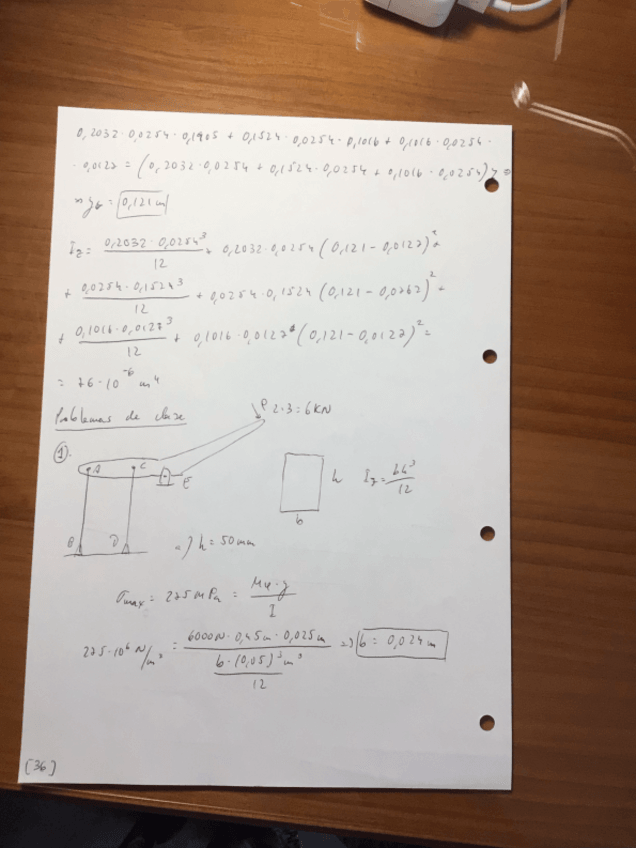 0,2032·0,0254·0,1905 + 0,1524·0,0254·0,1016 + 0,1016·0,0254·
·0,0127 = (0,2032·0,0254 + 0,1524·0,0254 + 0,1016·0,0254)y ⇒
⇒ yG = 0,121 m
Iz = 0,2032·0,0254³/12 + 0,2032·0,0254 (0,121 - 0,0127)² +
+ 0,0254·0,1524³/12 + 0,0254·0,1524 (0,121 - 0,0762)² +
+ 0,1016·0,0127³/12 + 0,1016·0,0127 (0,121 - 0,0127)² =
= 76·10⁻⁶ m⁴
Problemas de clase
P 2·3 = 6 KN
1).
A C E
h Iz = bh³/12
b
B D
a) h = 50 mm
σmax = 275 MPa = My·y/I
275·10⁶ N/m² = 6000N·0,45m·0,025m / b·(0,05)³m³/12 ⇒ b = 0,024 m
[36]